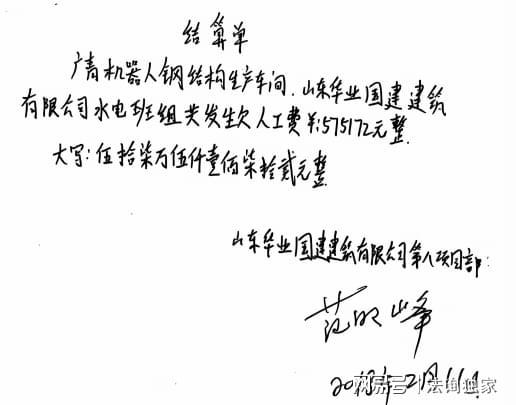 结算单
广青机器人钢结构生产车间.山东华业国建建筑
有限公司水电班组共发生欠人工费¥:575172元整.
大写:伍拾柒万伍仟壹佰柒拾贰元整.
山东华业国建建筑有限公司第八项目部:
范明峰
月11日
搜狐号@法询独家